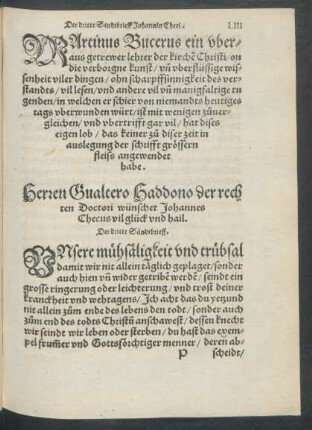 Der dritte Sendtbrieff Johannis Checi. LIII
MArtinus Bucerus ein vber-
aus getrewer lehrer der kirchē Christi/ on
die verborgne kunst/ vñ vberflüssige wis-
senheit viler dingen/ ohn scharpffsinnigkeit des ver-
standes/ vil lesen/ vnd andere vil vñ manigfaltige tu
genden/ in welchen er schier von niemandts heutiges
tags vberwunden würt/ ist mit wenigen züuer-
gleichen/ vnd vbertrifft gar vil/ hat dises
eigen lob/ das keiner zü diser zeit in
auslegung der schrifft grössern
fleiss angewendet
habe.
Herren Gualtero Haddono der rech
ten Doctori wünschet Johannes
Checus vil glück vnd hail.
Der dritte Sändtbrieff.
VNsere mühsäligkeit vnd trübsal
damit wir nit allein täglich geplaget/ sonder
auch hien vñ wider getribē werdē/ seindt ein
grosse ringerung oder leichterung/ vnd trost deiner
kranckheit vnd wehtagens/ Ich acht das du yezund
nit allein züm ende des lebens den todt/ sonder auch
züm end des todts Christū anschawest/ dessen knecht
wir seindt wir leben oder sterben/ du hast das exem-
pel frum̄er vnd Gottsförchtiger menner/ deren ab-
P scheidt/